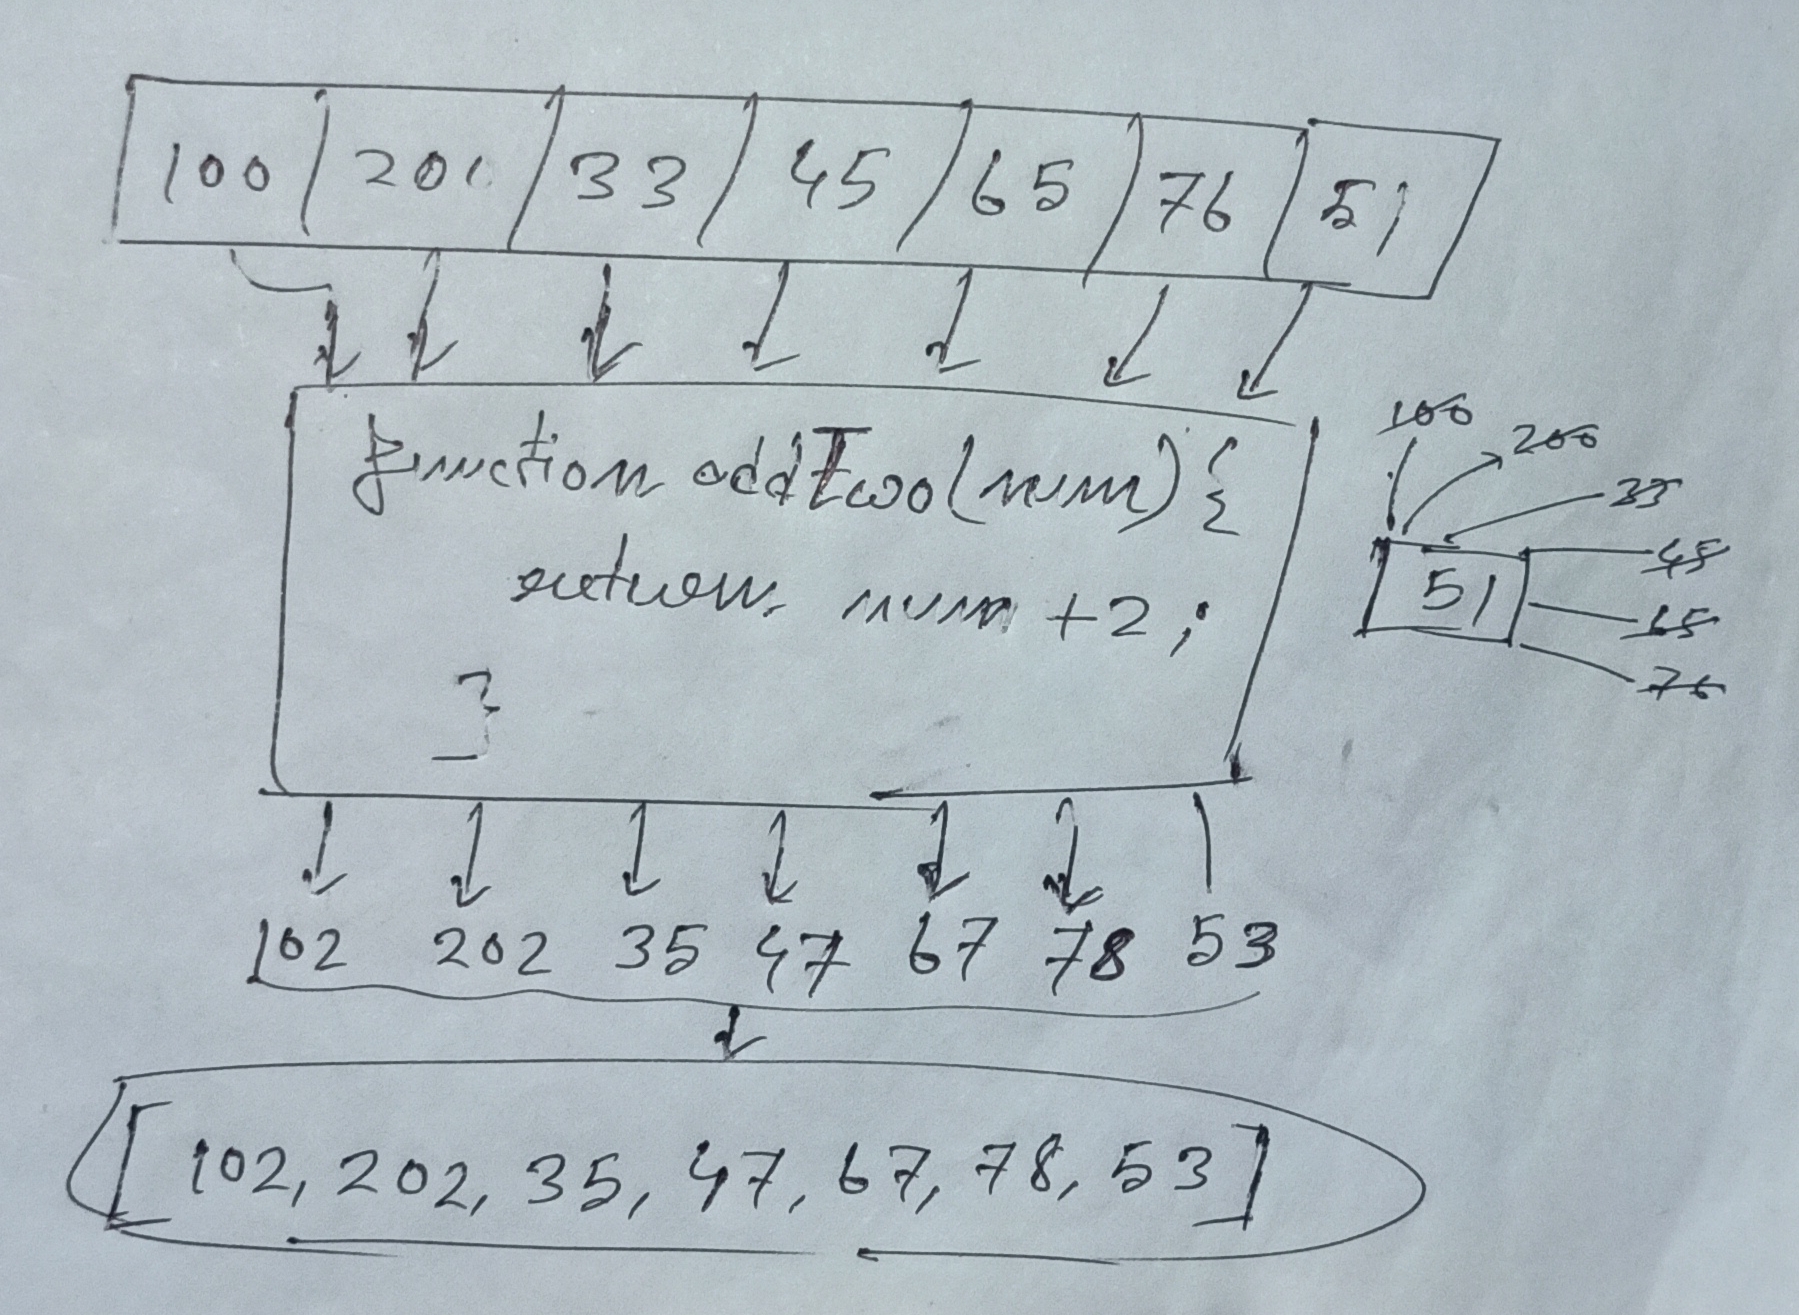 100 200 33 45 65 76 51
function addTwo(num) {
return num +2;
}
100
200
33
45
51
65
76
102 202 35 47 67 78 53
[102, 202, 35, 47, 67, 78, 53]